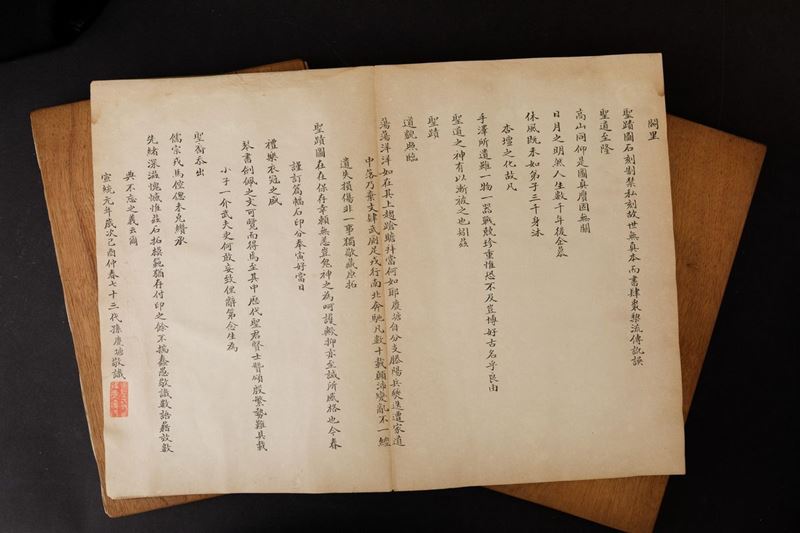 闕里
聖蹟圖石刻嚴禁私刻故世無真本而書肆棗棃流傳訛誤
聖道至隆
高山同仰是圖真贗固無關
日月之明然人生數千年後企慕
休風既未如弟子三千身沐
杏壇之化故凡
手澤所遺雖一物一器戰兢珍重惟恐不及豈博好古名乎良由
聖道之神有以漸被之也矧茲
聖蹟
道觀照臨
蕩蕩洋洋如在其上趨蹌瞻拜當何如耶慶塘自分支滕陽兵燹迭遭家道
中落乃棄文肄武廁足戎行南北奔馳凡數十載顛沛變亂不一經
遺失損傷非一事獨敬藏原拓
聖蹟圖在在保存幸賴無恙豈神之為呵護歟抑亦至誠所感格也今春
謹訂篇幅石印分奉寅好當日
禮樂衣冠之盛
琴書劍佩之文可覽而得焉至其中歷代聖君賢士贊頌殷繁勢難具載
小子一介武夫更何敢妄效俚辭第念生為
聖裔忝出
儒宗戎馬倥傯未克纘承
先緒深滋愧憾惟茲石拓模範猶存付印之餘不揣蠢愚敬識數語藉放數
典不忘之義云爾
宣統元年歲次己酉仲春七十三代孫慶塘敬識